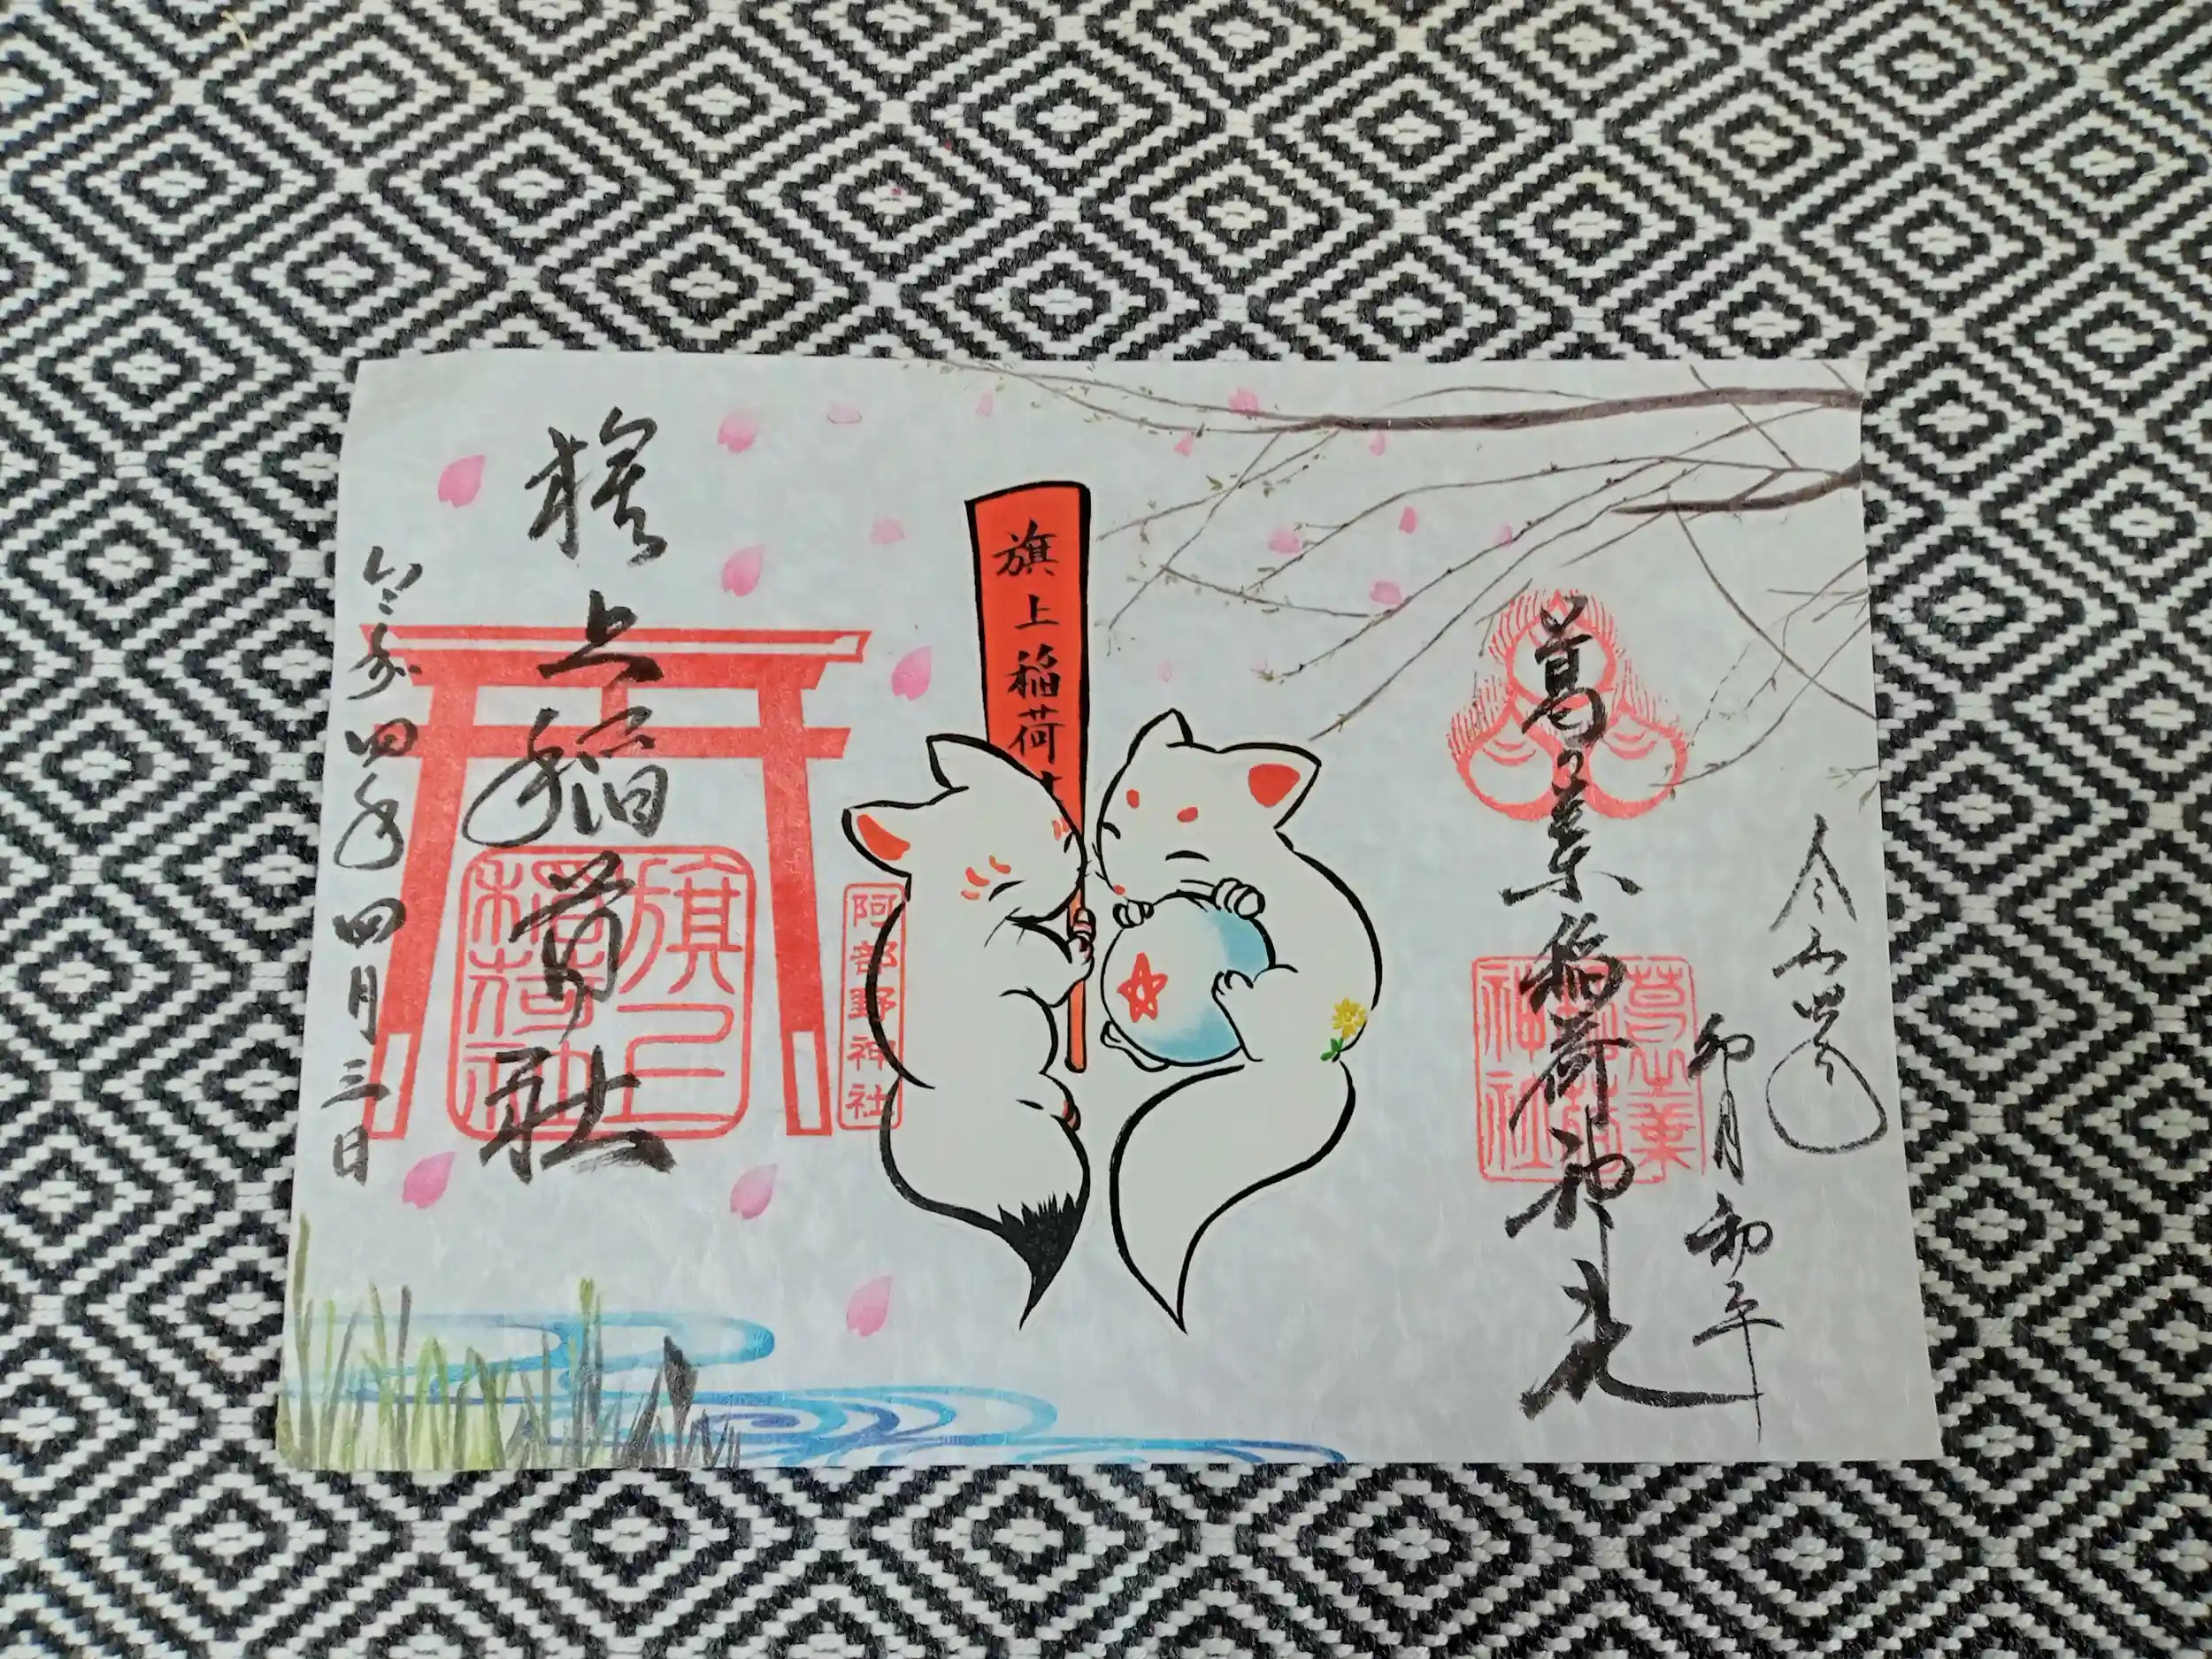 令和四年
卯月 和平
葛之葉稲荷神社
葛之葉
稲荷
神社
旗上稲荷
阿部野神社
旗上稲荷社
旗上
稲荷社
令和四年四月三日